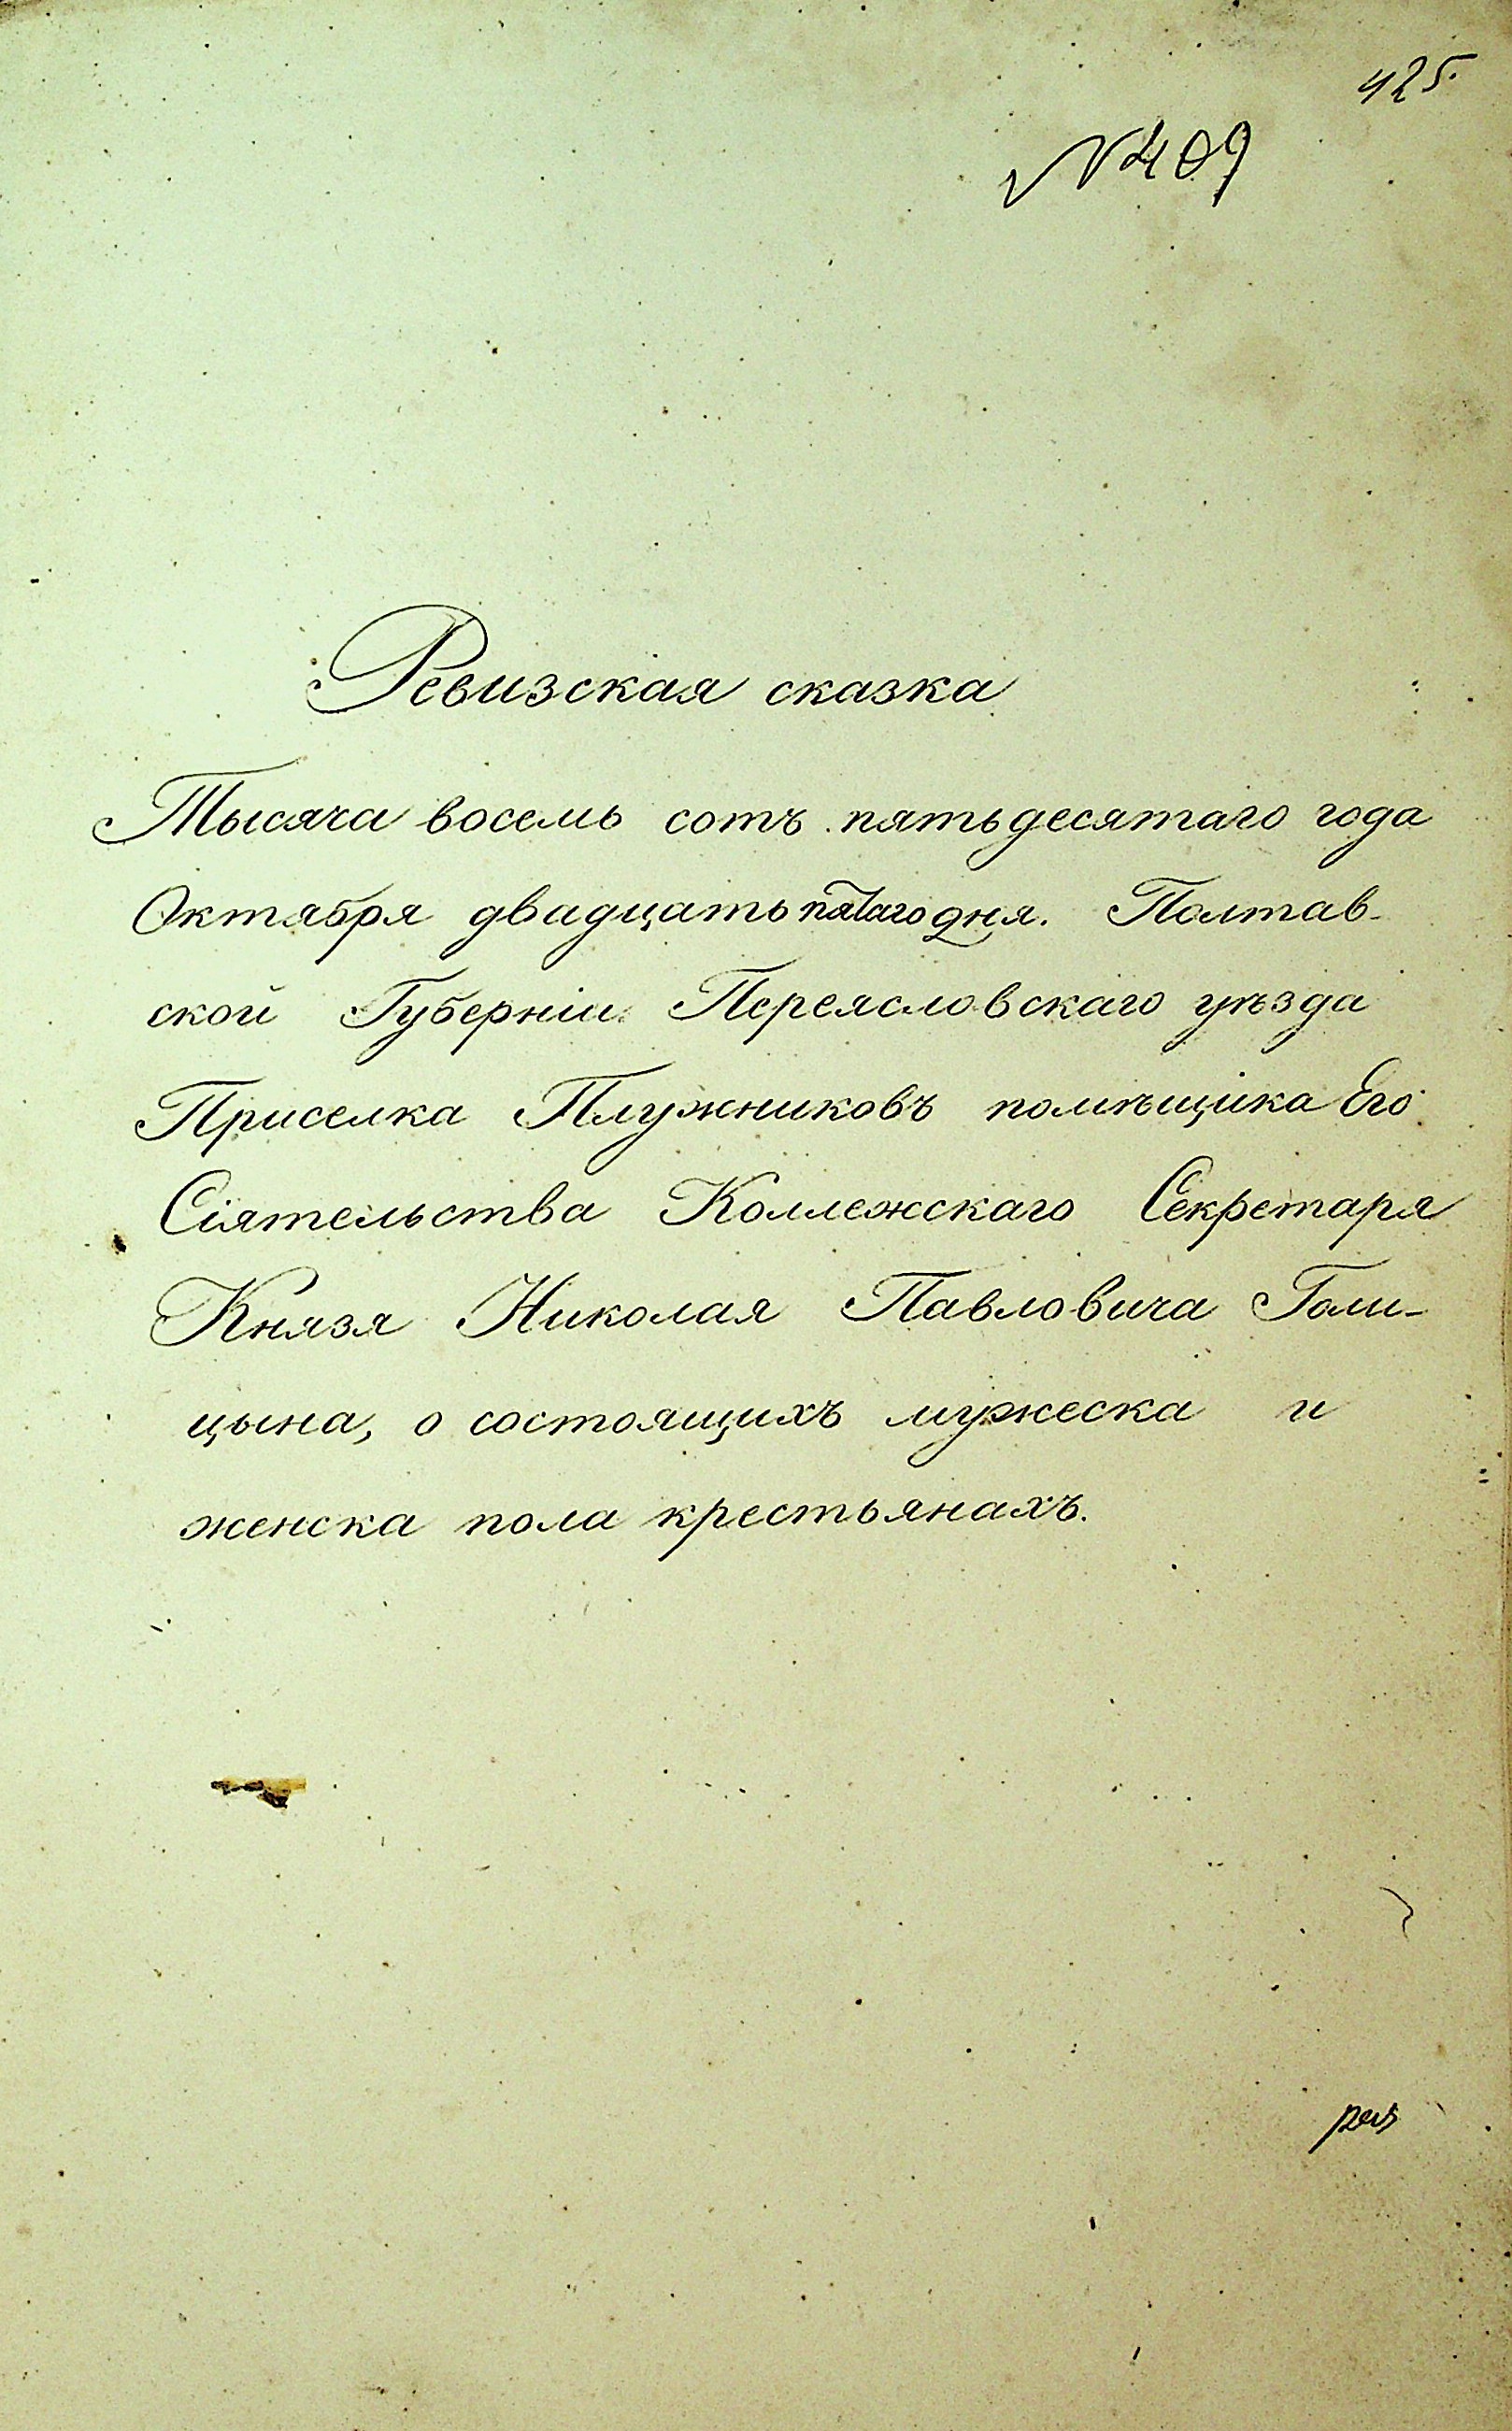 425.
№ 409
Ревизская сказка
Тысяча восемь сотъ пятьдесятаго года
Октября двадцать пятаго дня. Полтав-
ской Губерніи Переясловскаго уѣзда
Приселка Плужниковъ помѣщика Его
Сіятельства Коллежскаго Секретаря
Князя Николая Павловича Голи-
цына, о состоящихъ мужеска и
женска пола крестьянахъ.